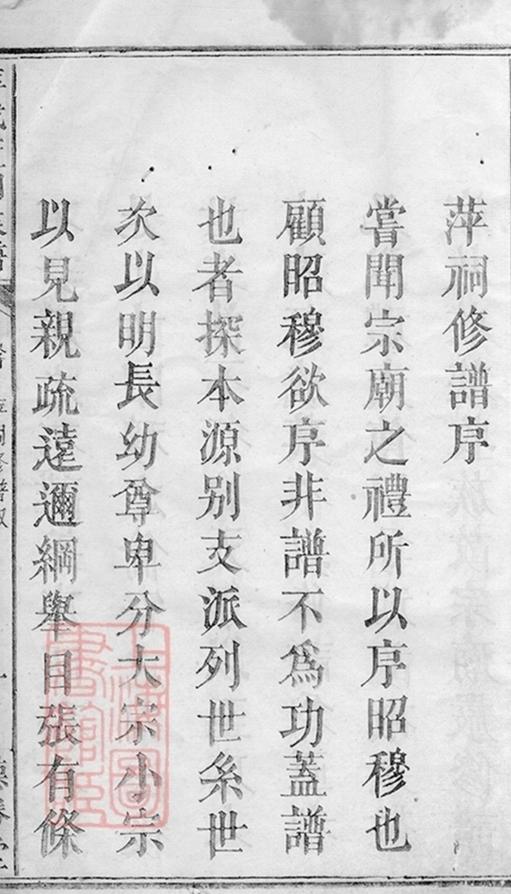 萍祠修譜序
嘗聞宗廟之禮所以序昭穆也
顧昭穆欲序非譜不為功蓋譜
也者探本源别支派列世系世
次以明長幼尊卑分大宗小宗
以見親疏遠邇綱舉目張有條